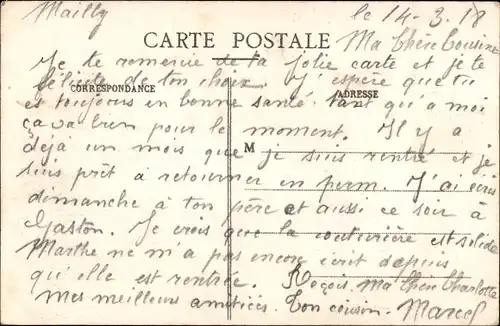 Mailly
le 14-3.18
CARTE POSTALE
Ma Chère Cousine
Je te remercie de ta jolie carte et je te
félicite de ton choix. J'espère que tu
CORRESPONDANCE
ADRESSE
es toujours en bonne santé. tant qu'a moi
ça va bien pour le moment. Il y a
M
déja un mois que je suis rentré et je
suis prêt à retourner en perm. J'ai écris
dimanche à ton père et aussi ce soir à
Gaston. Je crois que la couturière est solide
Marthe ne m'a pas encore écrit depuis
qu'elle est rentrée. Reçois, Ma Chère Charlotte
mes meilleurs amitiées. Ton cousin. Marcel